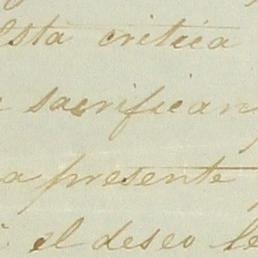 Esta critica
sacrifican
a presente
el deseo le